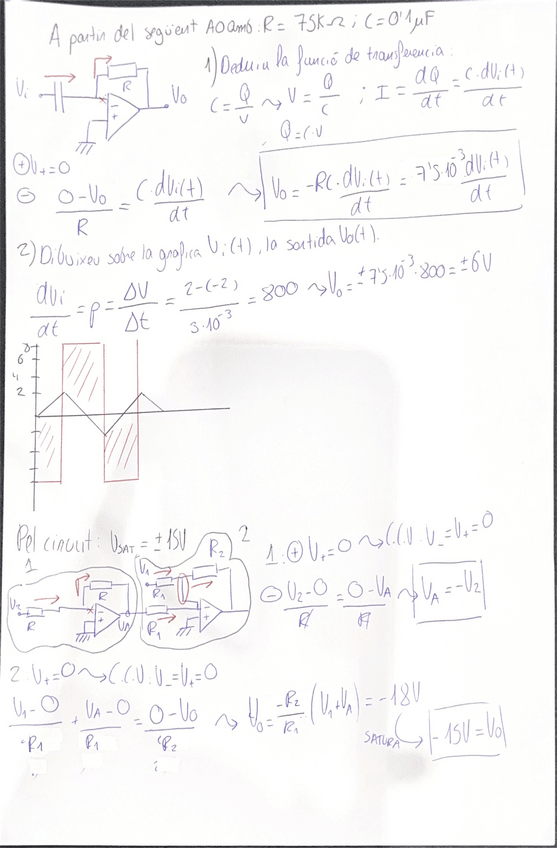 A partir del següent AO amb: R = 75KΩ ; C = 0'1μF
1) Deduiu la funció de transferencia:
Vi
R
Vo
C = Q/V ⇝ V = Q/C ; I = dQ/dt = C·dVi(t)/dt
Q = C·V
⊕ V+ = 0
⊖ 0-Vo/R = C·dVi(t)/dt ⇝ Vo = -RC·dVi(t)/dt = 7'5·10^-3 dVi(t)/dt
2) Dibuixeu sobre la grafica Vi(t), la sortida Vo(t).
dVi/dt = p = ΔV/Δt = 2-(-2)/5·10^-3 = 800 ⇝ Vo = ±7'5·10^-3·800 = ±6V
6
4
2
Pel circuit: VSAT = ±15V
1
2
V2
R
R
VA
V1
R1
R1
R2
1: ⊕ V+ = 0 ⇝ C.C.V. V- = V+ = 0
⊖ V2-0/R = 0-VA/R ⇝ VA = -V2
2: V+ = 0 ⇝ C.C.V. V- = V+ = 0
V1-0/R1 + VA-0/R1 = 0-Vo/R2 ⇝ Vo = -R2/R1 (V1+VA) = -18V
SATURA
-15V = Vo